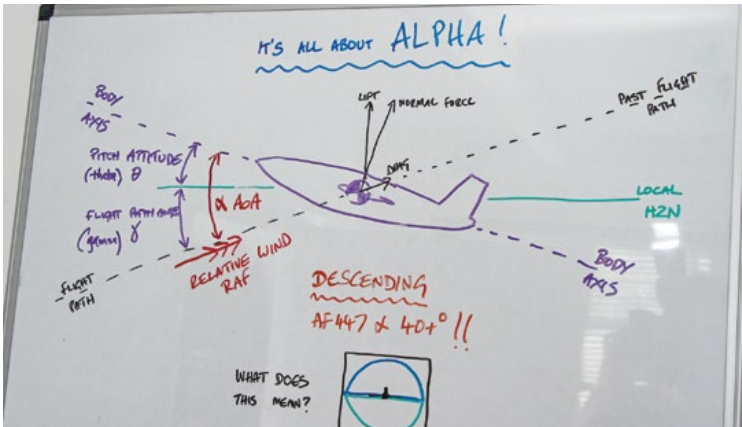 IT'S ALL ABOUT ALPHA!
BODY
AXIS
PITCH ATTITUDE
(theta) θ
FLIGHT PATH ANGLE
(gamma) γ
α AoA
RELATIVE WIND
RAF
FLIGHT
PATH
LIFT
NORMAL FORCE
DRAG
PAST FLIGHT
PATH
LOCAL
HZN
BODY
AXIS
DESCENDING
AF447 α 40+° !!
WHAT DOES
THIS MEAN?